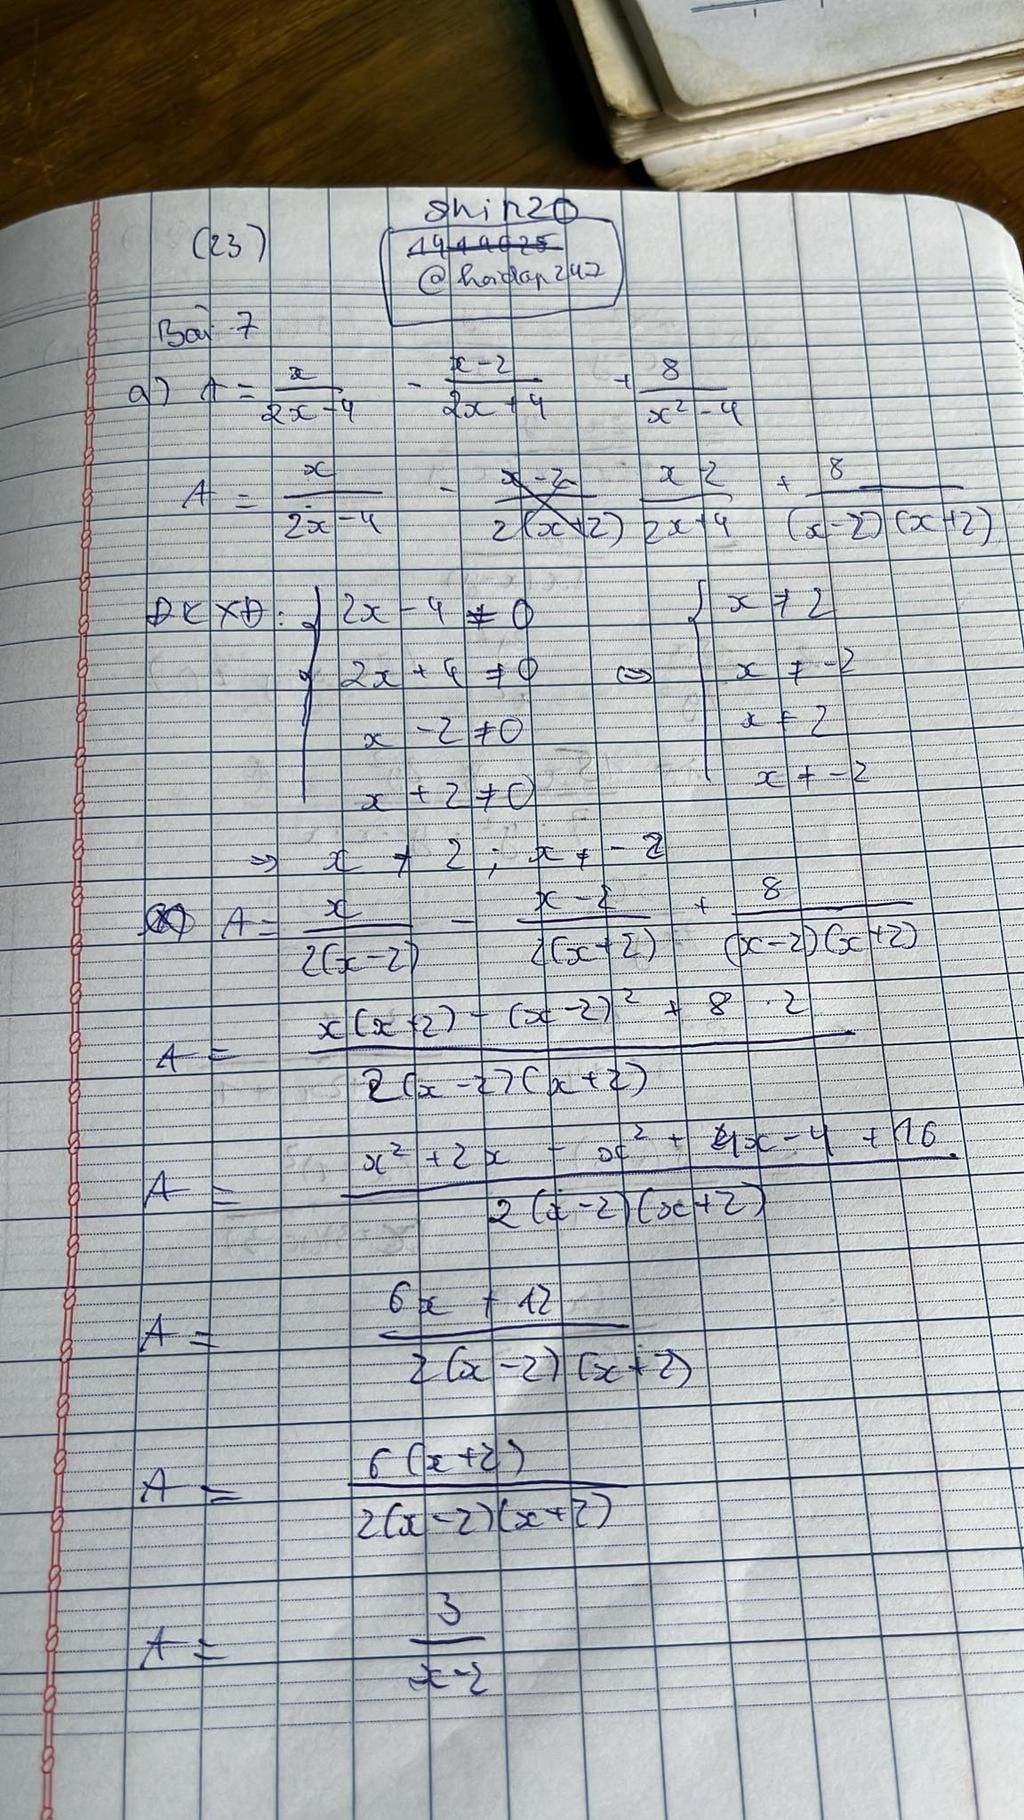 (23)
shin20
1944025
@hoidap247
Bài 7
a) A = x/(2x-4) - (x-2)/(2x+4) + 8/(x²-4)
A = x/(2x-4) - (x-2)/(2(x+2)) (x-2)/(2x+4) + 8/((x-2)(x+2))
ĐKXĐ: { 2x-4≠0 { x≠2
2x+4≠0 ⇔ x≠-2
x-2≠0 x≠2
x+2≠0 x≠-2
⇒ x≠2 ; x≠-2
A = x/(2(x-2)) - (x-2)/(2(x+2)) + 8/((x-2)(x+2))
A = (x(x+2) - (x-2)² + 8.2)/(2(x-2)(x+2))
A = (x²+2x - x² + 4x-4 + 16)/(2(x-2)(x+2))
A = (6x + 12)/(2(x-2)(x+2))
A = (6(x+2))/(2(x-2)(x+2))
A = 3/(x-2)